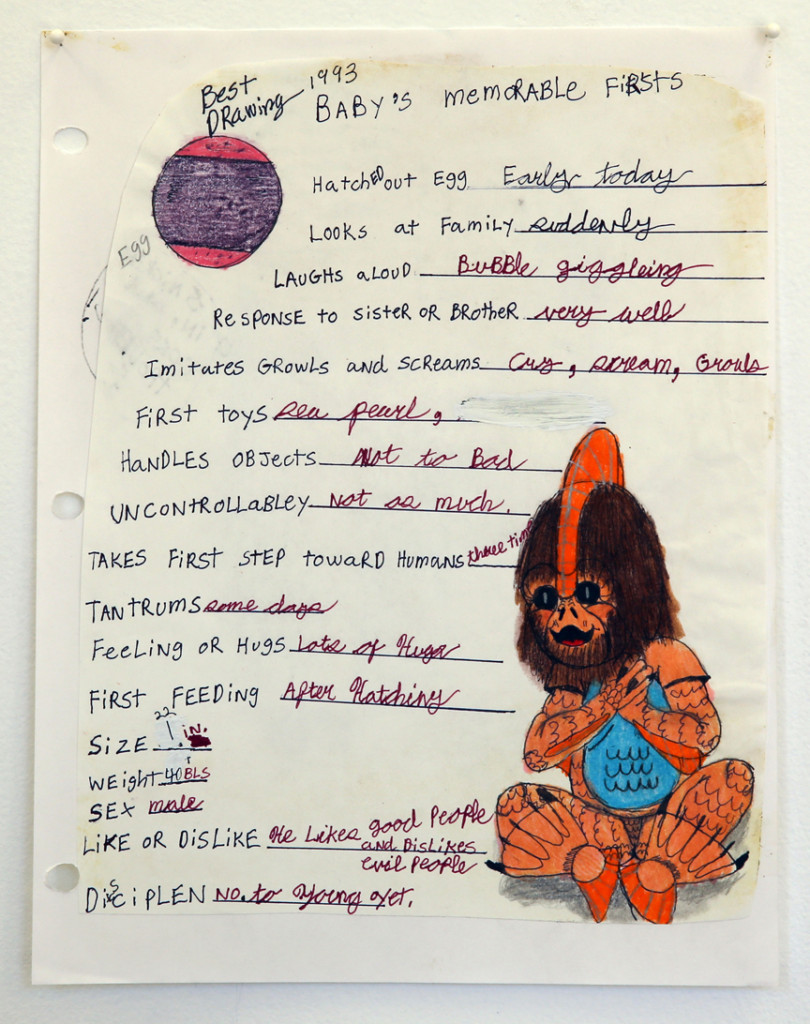 Best 1993
Drawing BABY'S MEMORABLE FIRSTS
HatchED out Egg Early today
Egg
LOOKS at Family suddenly
LAUGHS ALOUD BuBBle giggleing
RESPONSE to SistER OR BROtHER very well
Imitates GROWLS and SCREAMS Cry, scream, Growls
FIRST toys sea pearl,
HANDLES OBJECTS Not to Bad
UNCONTROLLABLEY Not so much.
TAKES FIRST STEP toward Humans three time
TANTRUMS some days
FEELING OR HUGS Lots of Hugs
FIRST FEEDING After Hatching
22
SIZE 1 in.
WEIGHT 40 BLS
SEX male
LIKE OR DISLIKE He Likes good People
and DISLIKES
evil People
DisCIPLEN NO. to Young yet.